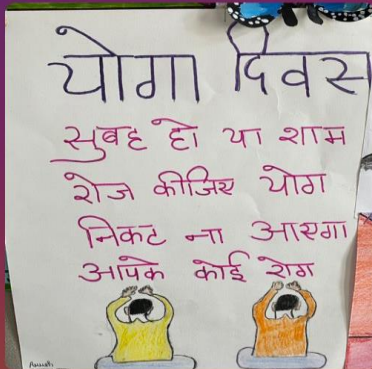 योगा दिवस
सुबह हो या शाम
रोज कीजिए योग
निकट ना आएगा
आपके कोई रोग